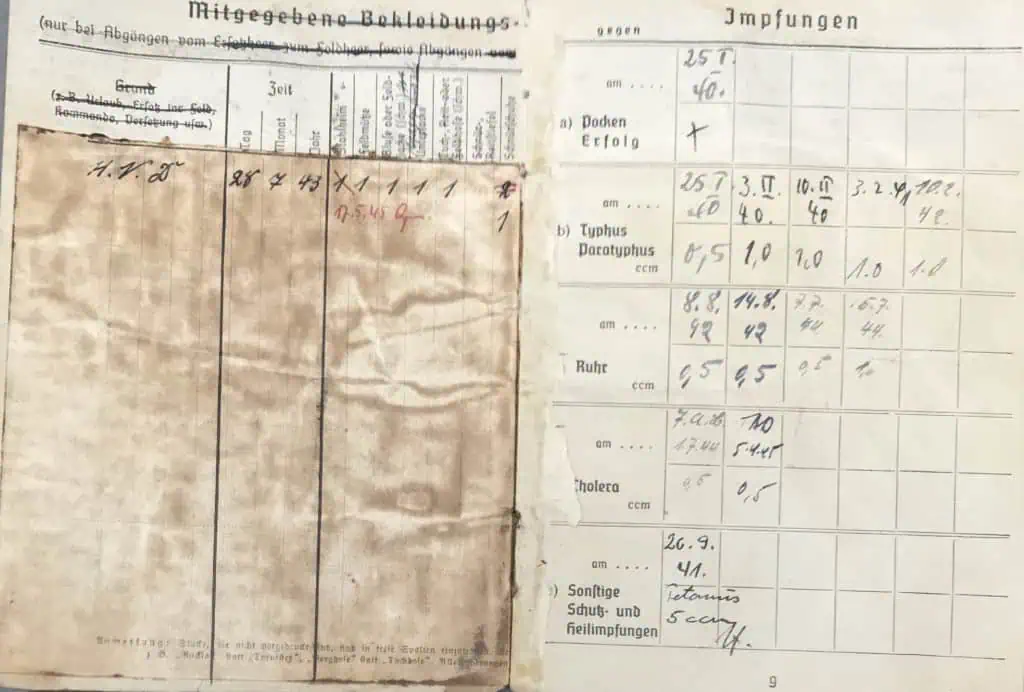 Mitgegebene Bekleidungs-
(nur bei Abgängen vom Ersatzheer zum Feldheer, sowie Abgängen vom
Grund
(z. B. Urlaub, Ersatz ins Feld,
Kommando, Versetzung usw.)
Zeit
Tag
Monat
Jahr
Stahlhelm
Feldmütze
Tuch-, Reit-oder
Feldhose (Schw.)
Schnür-
28 7 43 1 1 1 1 1
17.5.45
1
Anmerkung: Stücke, die nicht vorgedruckt sind, sind in freie Spalten
z. B. „Rucksack“ statt „Tornister“, „Berghose“ statt „Tuchhose“.
Impfungen
gegen
25 I.
am .... 40.
a) Pocken
Erfolg +
25 I 3. II. 10. II 3. 2. 10. 2.
am .... 40 40. 40 42.
b) Typhus
Paratyphus
ccm 0,5 1,0 1,0 1.0 1.0
8.8. 14.8. 7.7. 15.7.
am .... 42 42 44 44.
Ruhr
ccm 0,5 0,5 0,5 1,0
am .... 1.7.44 5.4.45
Cholera
ccm 0,5 0,5
26.9.
am .... 41.
) Sonstige Tetanus
Schutz- und 5 ccm
Heilimpfungen
9